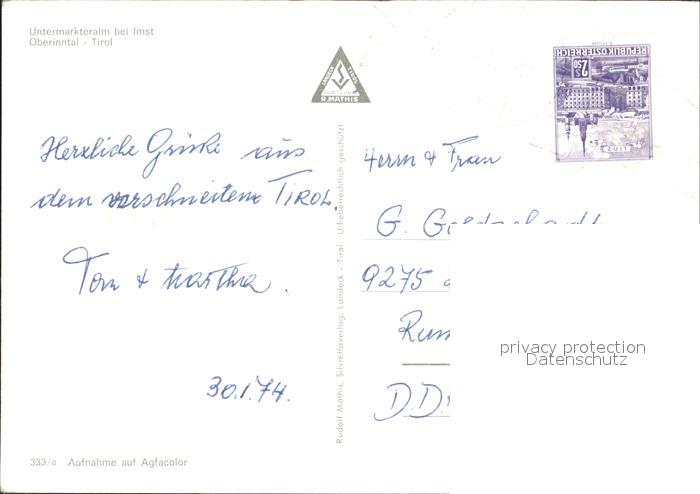 Untermarkteralm bei Imst
Oberinntal - Tirol
R. MATHIS
REPUBLIK ÖSTERREICH
2,50
Herzliche Grüße aus
dem verschneiten TIROL.
Tom & Martha.
30.1.74.
Rudolf Mathis, Silvrettaverlag, Landeck - Tirol. Urheberrechtlich geschützt
Herrn & Frau
G.
9275
D.D.
privacy protection
Datenschutz
333/a Aufnahme auf Agfacolor